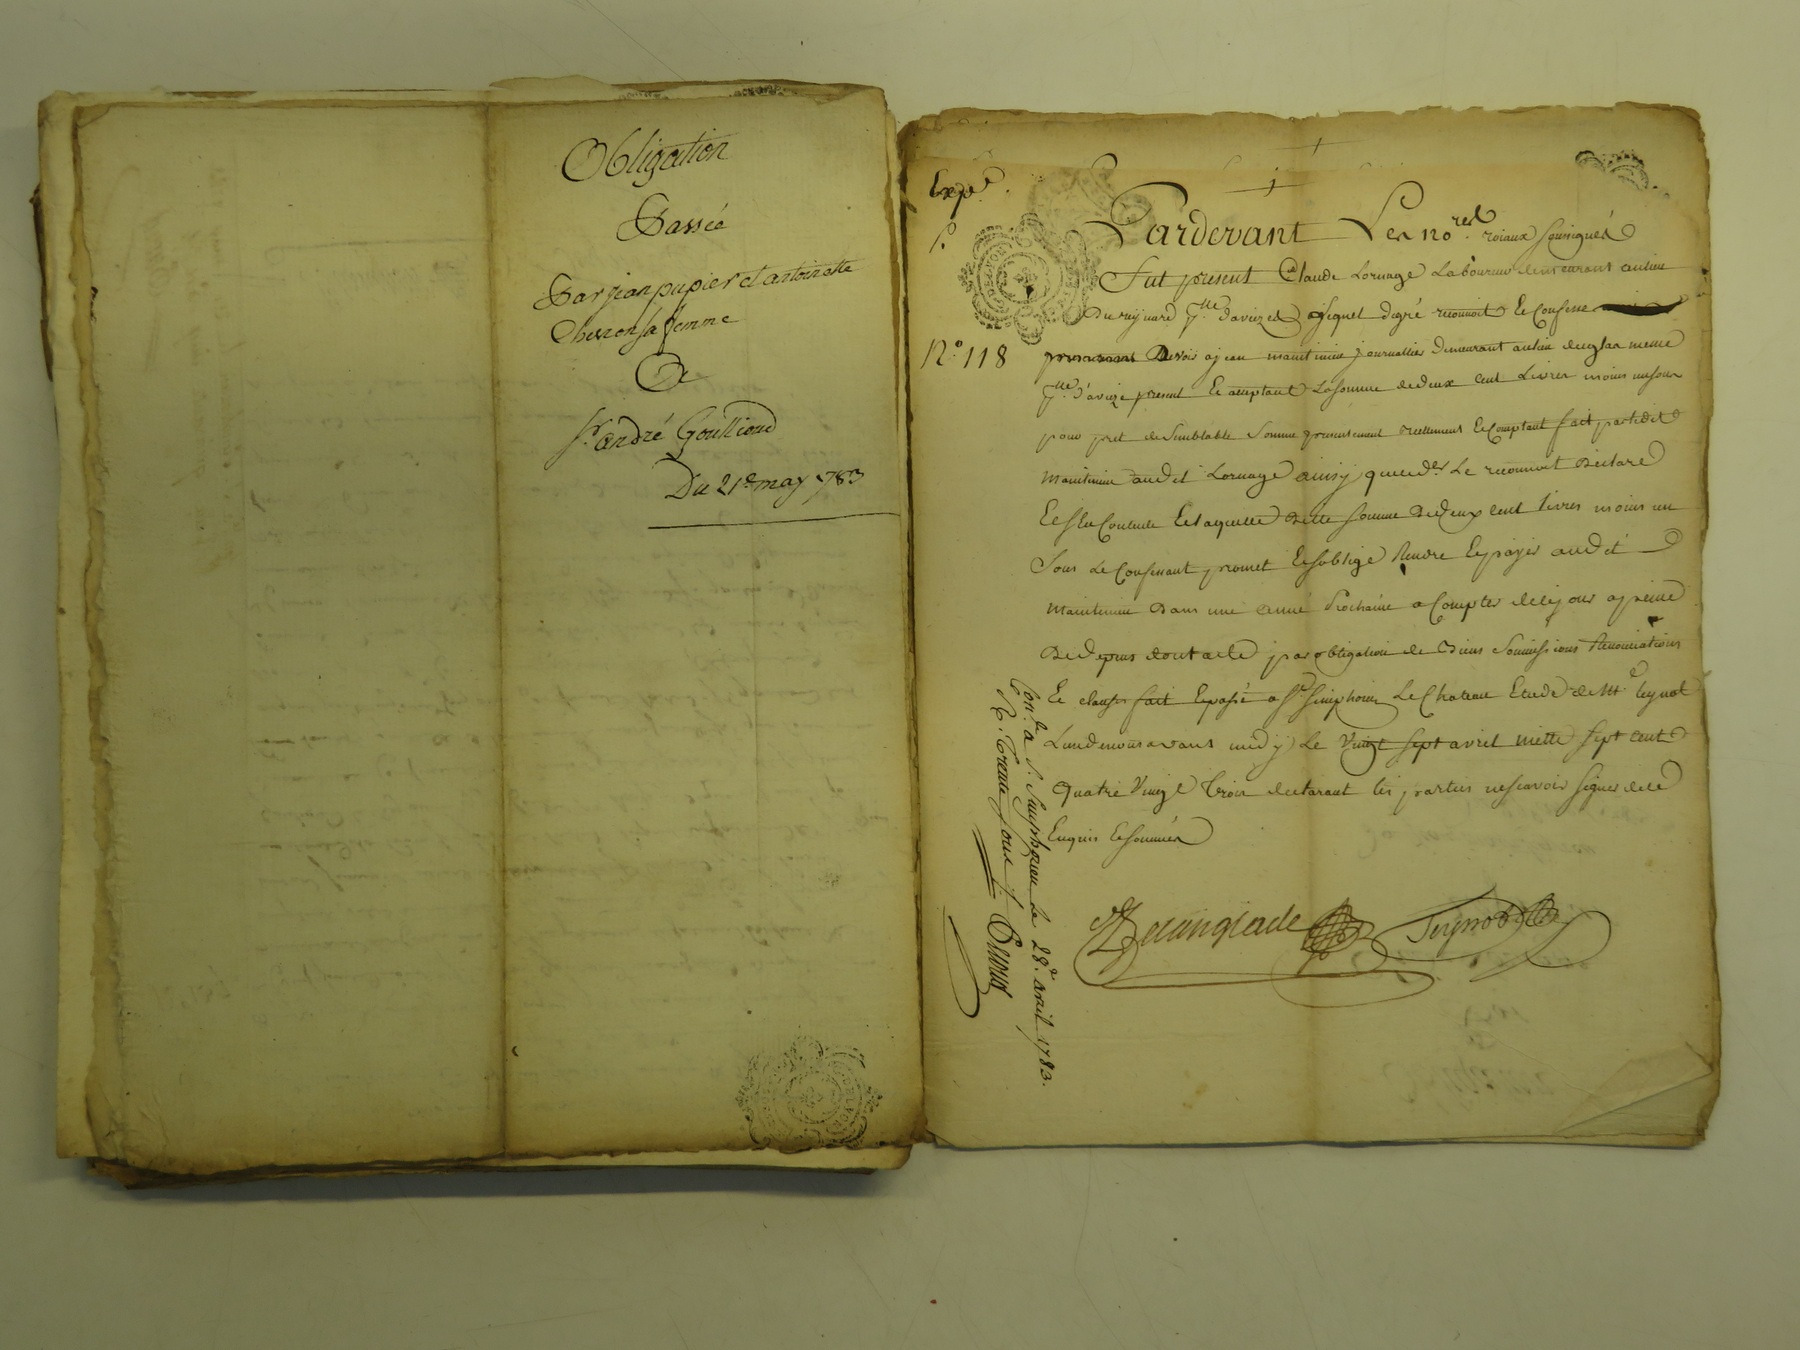 Obligation
Passée
Par jean pupier et antoinette
Cheron sa femme
A
Sr. andré Goulliond
Du 21e. may 1783
Expé.
N.o 118
Pardevant Les nores. roiaux soussignés
Fut present Claude Lornage Laboureur demeurant au lieu
Du ruynard psse d'avieze Lequel de gré reconnoit Et Confesse
Devoir a jean mainteinie journallier Demeurant au lieu du glan meme
psse. d'avieze present Et acceptant La somme de deux cent Livres moins un sou
pour pret de semblable somme presentement reellement Et Comptant fait par ledit
mainteinie audit Lornage ainsy que ced.er Le reconnoit Declare
Et s'En Contente Et laquelle Dette somme De Deux cent livres moins un
Sous Le Confessant promet Et s'oblige Rendre Et payer audit
mainteinie Dans une année Prochaine a Compter de ce jour a peine
De Depens dont acte par obligation de Biens Soumissions Renonciations
Et clauses fait Et passé a St. Simphorien Le Chateau Etude de Me Teynot
L'un de nous avant midy Le Vingt sept avril mille sept cent
Quatre Vingt Trois declarant les parties ne scavoir signer de ce
Enquis Et sommés
Teynot
Conlé. a St. Simphorien Le 28.e avril 1783.
R. Trente sous